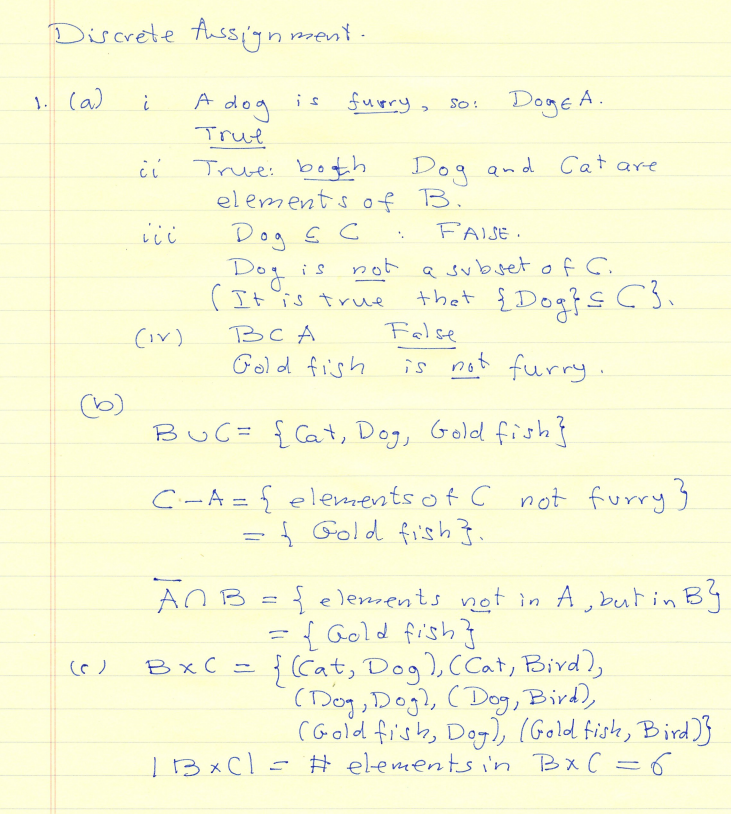 Discrete Assignment.
1. (a) i A dog is furry, so: Dog∈A.
True
ii True: both Dog and Cat are
elements of B.
iii Dog ⊆ C : FAlSE.
Dog is not a subset of C.
(It is true that {Dog} ⊆ C}.
(iv) B ⊂ A False
Gold fish is not furry.
(b)
B ∪ C = {Cat, Dog, Gold fish}
C - A = { elements of C not furry}
= { Gold fish}.
A̅ ∩ B = { elements not in A, but in B}
= { Gold fish}
(c) B x C = {(Cat, Dog), (Cat, Bird),
(Dog, Dog), (Dog, Bird),
(Gold fish, Dog), (Gold fish, Bird)}
|B x C| = # elements in B x C = 6